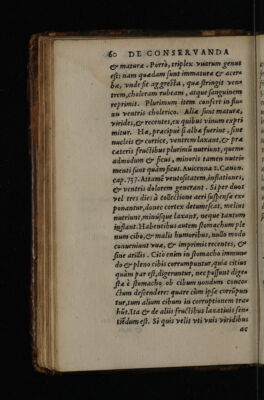 60 DE CONSERVANDA
& maturæ. Porrò, triplex vuarum genus
est: nam quædam sunt immaturæ & acer-
bæ, vnde fit aggresta, quæ stringit ven-
trem, choleram rubeam, atque sanguinem
reprimit. Plurimum item confert in flu-
xu ventris cholerico. Aliæ sunt maturæ,
virides, & recentes, ex quibus vinum expri
mitur. Hæ, præcipuè si albæ fuerint, sine
nucleis & cortice, ventrem laxant, & præ
cæteris fructibus plurimũ nutriunt, quem-
admodum & ficus, minoris tamen nutri-
menti sunt quàm ficus. Auicenna 2. Canon.
cap. 757. Attamẽ ventositatem, inflationes,
& ventris dolorem generant. Si per duos
vel tres dies à collectione aeri suspensæ ex-
ponantur, donec cortex detumescat, melius
nutriunt, minúsque laxant, neque tantum
inflant. Habentibus autem stomachum ple
num cibo, & malis humoribus, nullo modo
conueniunt vuæ, & imprimis recentes, &
sine arillis. Citò enim in stomacho immun-
do & pleno cibis corrumpuntur, quia citius
quàm par est, digeruntur, nec possunt dige-
stæ è stomacho, ob cibum nondum conco-
ctum descendere: quare cùm ipsæ corrũpun
tur, tum alium cibum in corruptionem tra-
hũt. Ita & de aliis fructibus laxatiuis sen-
tiẽdum est. Si quis velit vti vuis viridibus
ac